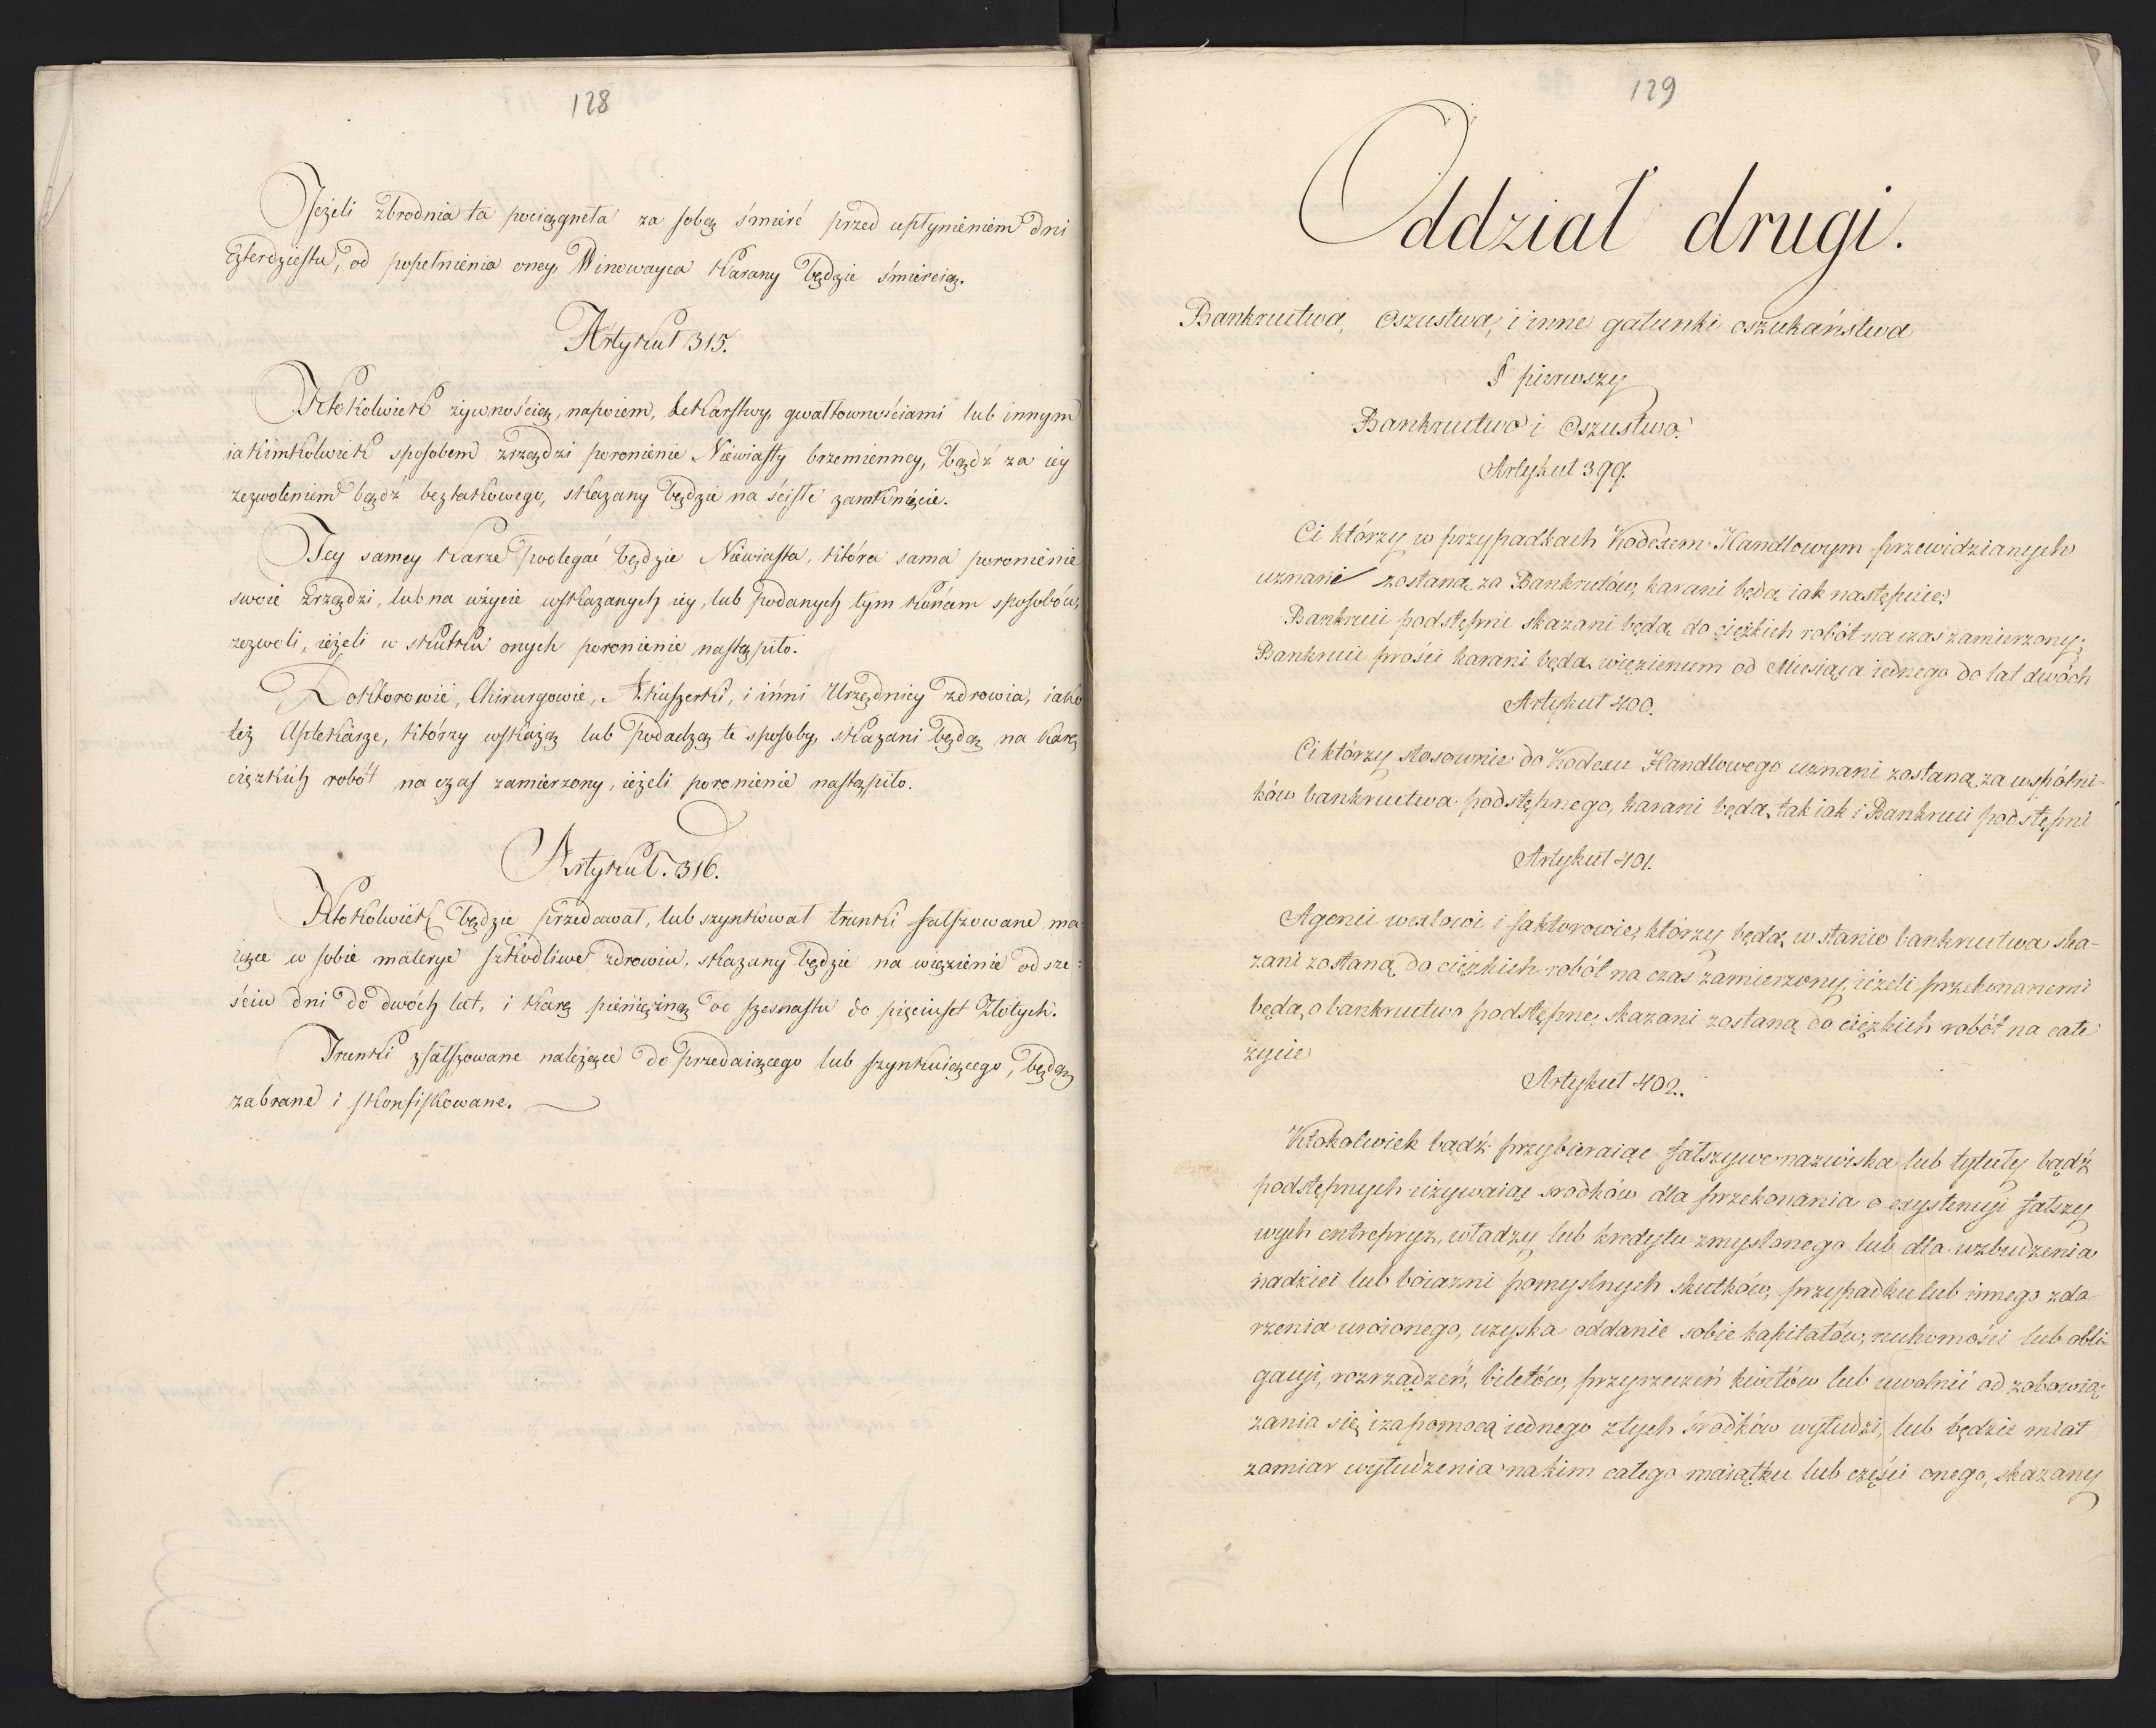 128
Jeżeli zbrodnia ta pociągneła za sobą śmierć przed upłynieniem dni
czterdziestu, od popełnienia oney, Winowayca karany będzie śmiercią.
Artykuł 315.
Ktokolwiek żywnością, napoiem, lekarstwy, gwałtownościami lub innym
iakimkolwiek sposobem zrządzi poronienie Niewiasty brzemienney, bądź za iey
zezwoleniem bądź bez takowego, skazany będzie na ściśłe zamknięcie.
Tey samey karze podlegać będzie Niewiasta, która sama poronienie
swoie zrządzi, lub na użycie wskazanych iey, lub podanych tym końcem sposobów,
zezwoli, ieżeli w skutku onych poronienie nastąpiło.
Doktorowie, Chirurgowie, Akuszerki, i inni Urzędnicy zdrowia, iako
też Aptekarze, którzy wskażą lub podadzą te sposoby, skazani będą na karę
ciężkich robót na czas zamierzony, ieżeli poronienie nastąpiło.
Artykuł. 316.
Ktokolwiek będzie przedawał, lub szynkował trunki fałszowane ma
iące w sobie materye szkodliwe zdrowiu, skazany będzie na więzienie od sze:
ściu dni do dwóch lat, i karę pieniężną od szesnastu do pięciuset Złotych.
Trunki zfałszowane należące do przedaiącego lub szynkuiącego, będą
zabrane i skonfiskowane.
129
Oddział drugi.
Bankructwa, Oszustwa, i inne gatunki oszukaństwa
§ pierwszy
Bankructwo i Oszustwo.
Artykuł 399.
Ci którzy w przypadkach Kodexem Handlowym przewidzianych
uznani zostaną za Bankrutów, karani będą iak następuie:
Bankruci podstępni skazani będą do cięzkich robót na czas zamierzony;
Bankruci prości karani będą więzieniem od Miesiąca iednego do lat dwóch
Artykuł 400.
Ci którzy stosownie do Kodexu Handlowego uznani zostaną za wspólni-
ków bankructwa podstępnego, karani będą, tak iak i Bankruci podstępni
Artykuł 401.
Agenci wexlowi i faktorowie, którzy będą w stanie bankructwa ska-
zani zostaną do ciężkich robót na czas zamierzony, ieżeli przekonanemi
będą, o bankructwo podstępne, skazani zostaną do ciężkich robót na całe
życie
Artykuł 402.
Ktokolwiek bądź przybieraiąc fałszywe nazwiska lub tytuły bądź
podstępnych używaiąc srodków dla przekonania o exystencyi fałszy
wych entrepryz, władzy lub kredytu zmyslonego lub dla wzbudzenia
nadziei lub boiazni pomyslnych skutków, przypadku lub innego zda-
rzenia uroionego, uzyska oddanie sobie kapitałów, ruchomości lub obli-
gacyi, rozrządzeń, biletów, przyrzeczeń kwitów lub uwolnić od zobowią
zania się, i za pomocą iednego z tych środków wyłudzi, lub będzie miał
zamiar wyłudzenia na kim całego maiątku lub części onego, skazany